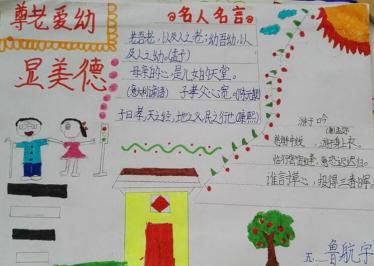 尊老爱幼
显美德
名人名言
老吾老,以及人之老;幼吾幼,以
及人之幼。(孟子)
母亲的心是儿女的天堂。
(意大利谚语) 子孝父心宽。
子曰:孝,天之经,地之义,民之行也
游子吟
慈母手中线,游子身上衣。
临行密密缝,意恐迟迟归。
谁言寸草心,报得三春晖。
五
鲁航宇